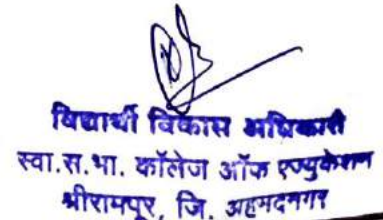 विद्यार्थी विकास अधिकारी
स्वा.स.भा. कॉलेज ऑफ एज्युकेशन
श्रीरामपूर, जि. अहमदनगर